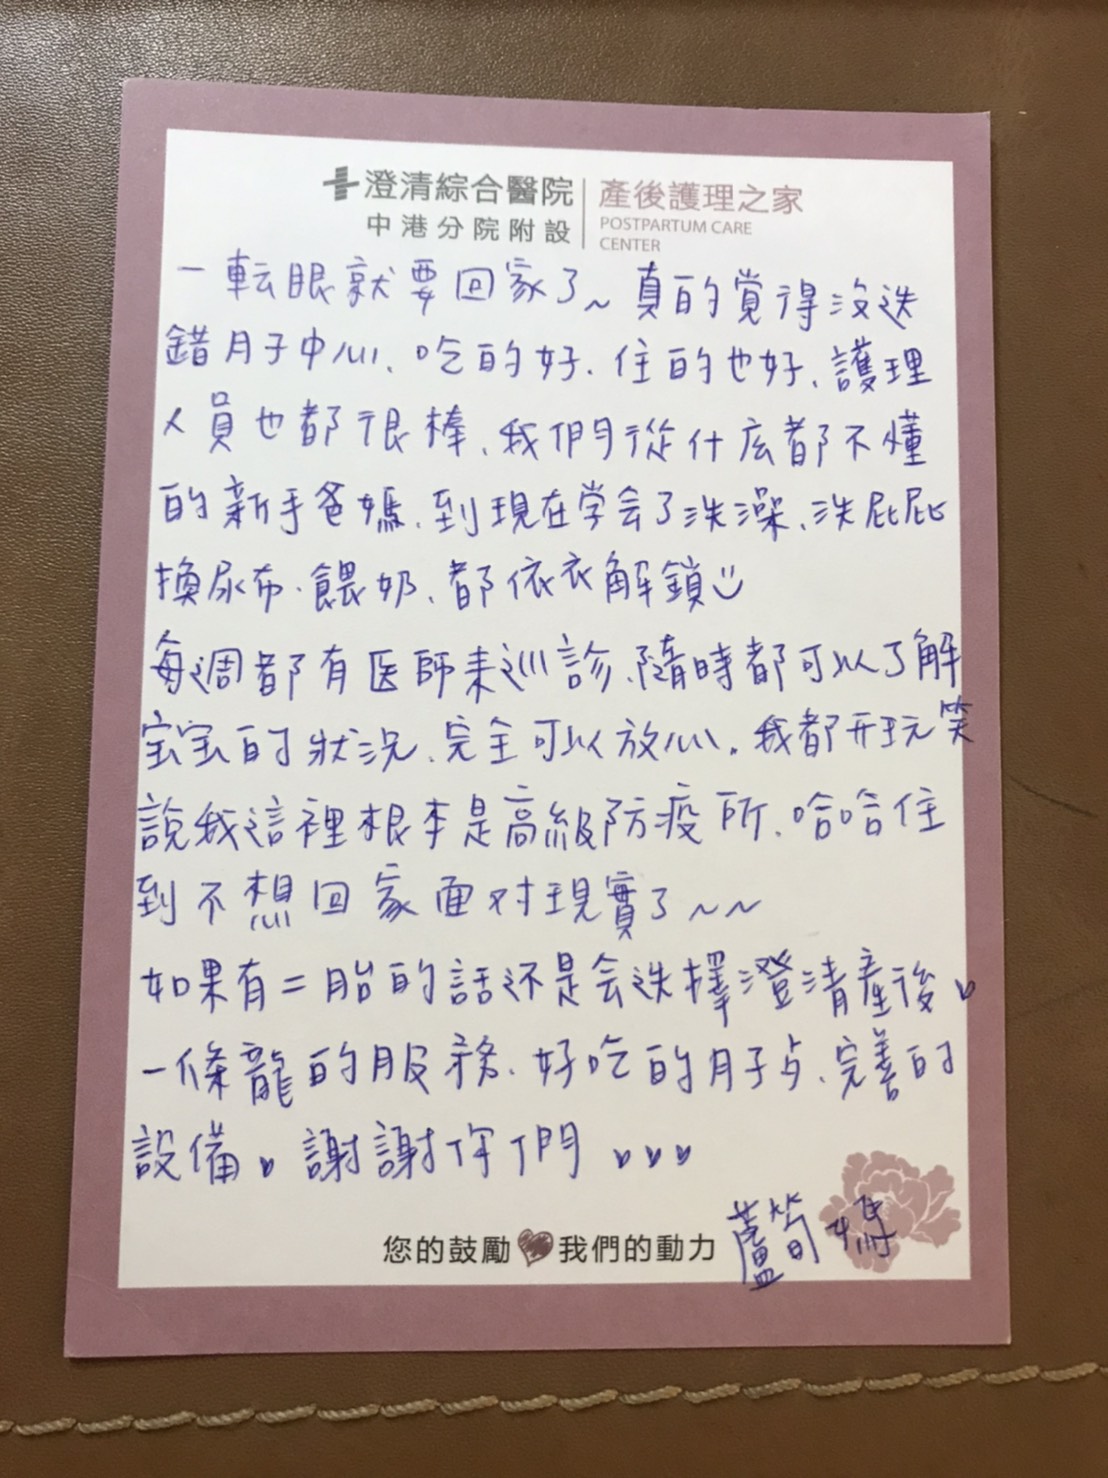 澄清綜合醫院
中港分院附設
產後護理之家
POSTPARTUM CARE
CENTER
一転眼就要回家了~真的覚得沒迭
錯月子中心、吃的好、住的也好、護理
人員也都很棒、我們從什庅都不懂
的新手爸媽、到現在学会了洗澡、洗屁屁
換尿布、餵奶、都依衣解鎖
每週都有医師来巡診、隨時都可以了解
宝宝的狀況、完全可以放心。我都開玩笑
說我這裡根本是高級防疫所、哈哈住
到不想回家面对現實了~~
如果有二胎的話还是会迭擇澄清產後
一條龍的服務、好吃的月子歺、完善的
設備。謝謝你們
您的鼓勵 我們的動力
蘆筍媽